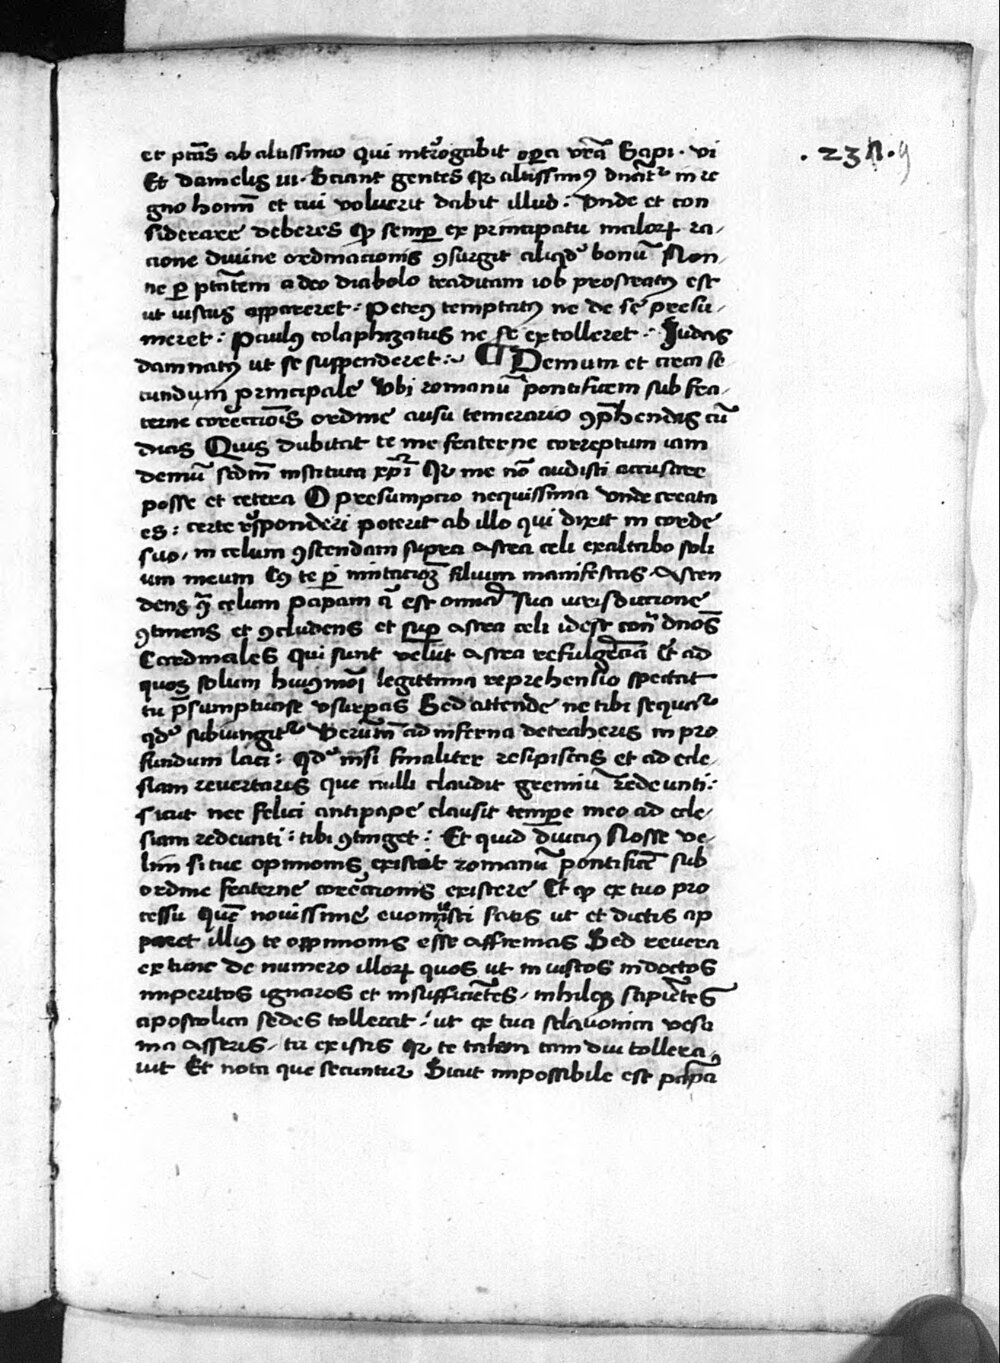 et ptās ab altissimo qui introgabit opa vrā Sapi · vi
Et danielis iii · Sciant gentes qr altissimꝰ dnāt᷑ in re
gno homī et cui voluerit dabit illud : Vnde et con
siderare deberes qp semp ex principatu malorꝝ ra-
cione diuine ordinacionis ꝯsurgit aliqd bonū Non-
ne p ptātem a deo diabolo traditam iob prostratꝰ est
ut iustus appareret : Petrꝰ temptatꝰ ne de se presu-
meret : Paulus colaphizatus ne se extolleret : Iudas
damnatꝰ ut se suspenderet : ¶ Demum et circa se
cundum principale Vbi romanū pontificem sub fra-
terne corectiōis ordine ausu temerario ꝯphendis cū
dicis Quis dubitat te me fraterne correptum iam
demū scdm instituta xpi Qr me nō audisti accusare
posse et cetera O presumpcio nequissima vnde creata
es : certe rñsponderi poterit ab illo qui dixit in corde
suo / in celum ꝯscendam supra astra celi exaltabo soli
um meum Cꝰ te p imitacioꝫ filium manifestas Ascen
dens celum papam est omā sua iurisdictione
ꝯtinens et ꝯcludens et sup astra celi idest dnōs
Cardinales qui sunt velut astra refulgēcia Et ad
quos solum huiꝰmoi legittima reprehensio spectat
tu psumptuose vsurpas Sed attende ne tibi sequat᷑
qd subiungit᷑ Verum ad inferna detraheris in pro
fundum laci : qd nisi finaliter resipiscas et ad ecle-
siam reuertaris que nulli claudit gremiū redeunti :
sicut nec felici antipape clausit tempe meo ad ecle-
siam redeunti : tibi ꝯtinget : Et quid diucius Nosse ve-
lim si tue opinionis existat romanū pontificē sub
ordine fraterne corectionis existere Et qp ex tuo pro
cessu quē nouissime euomuisti satis ut et dictis ap
paret illiꝰ te oppinionis esse affirmas Sed reuera
ex tunc de numero illorꝝ quos ut iniustos indoctos
imperitos ignaros et insufficiētes / nihilqꝫ sapiētes
apostolica sedes tollerat : ut ex tua sclauonica vesa
nia asseris / tu existis qr te talem tam diu tollera-
uit Et nota que secuntur Sicut impossibile est papā